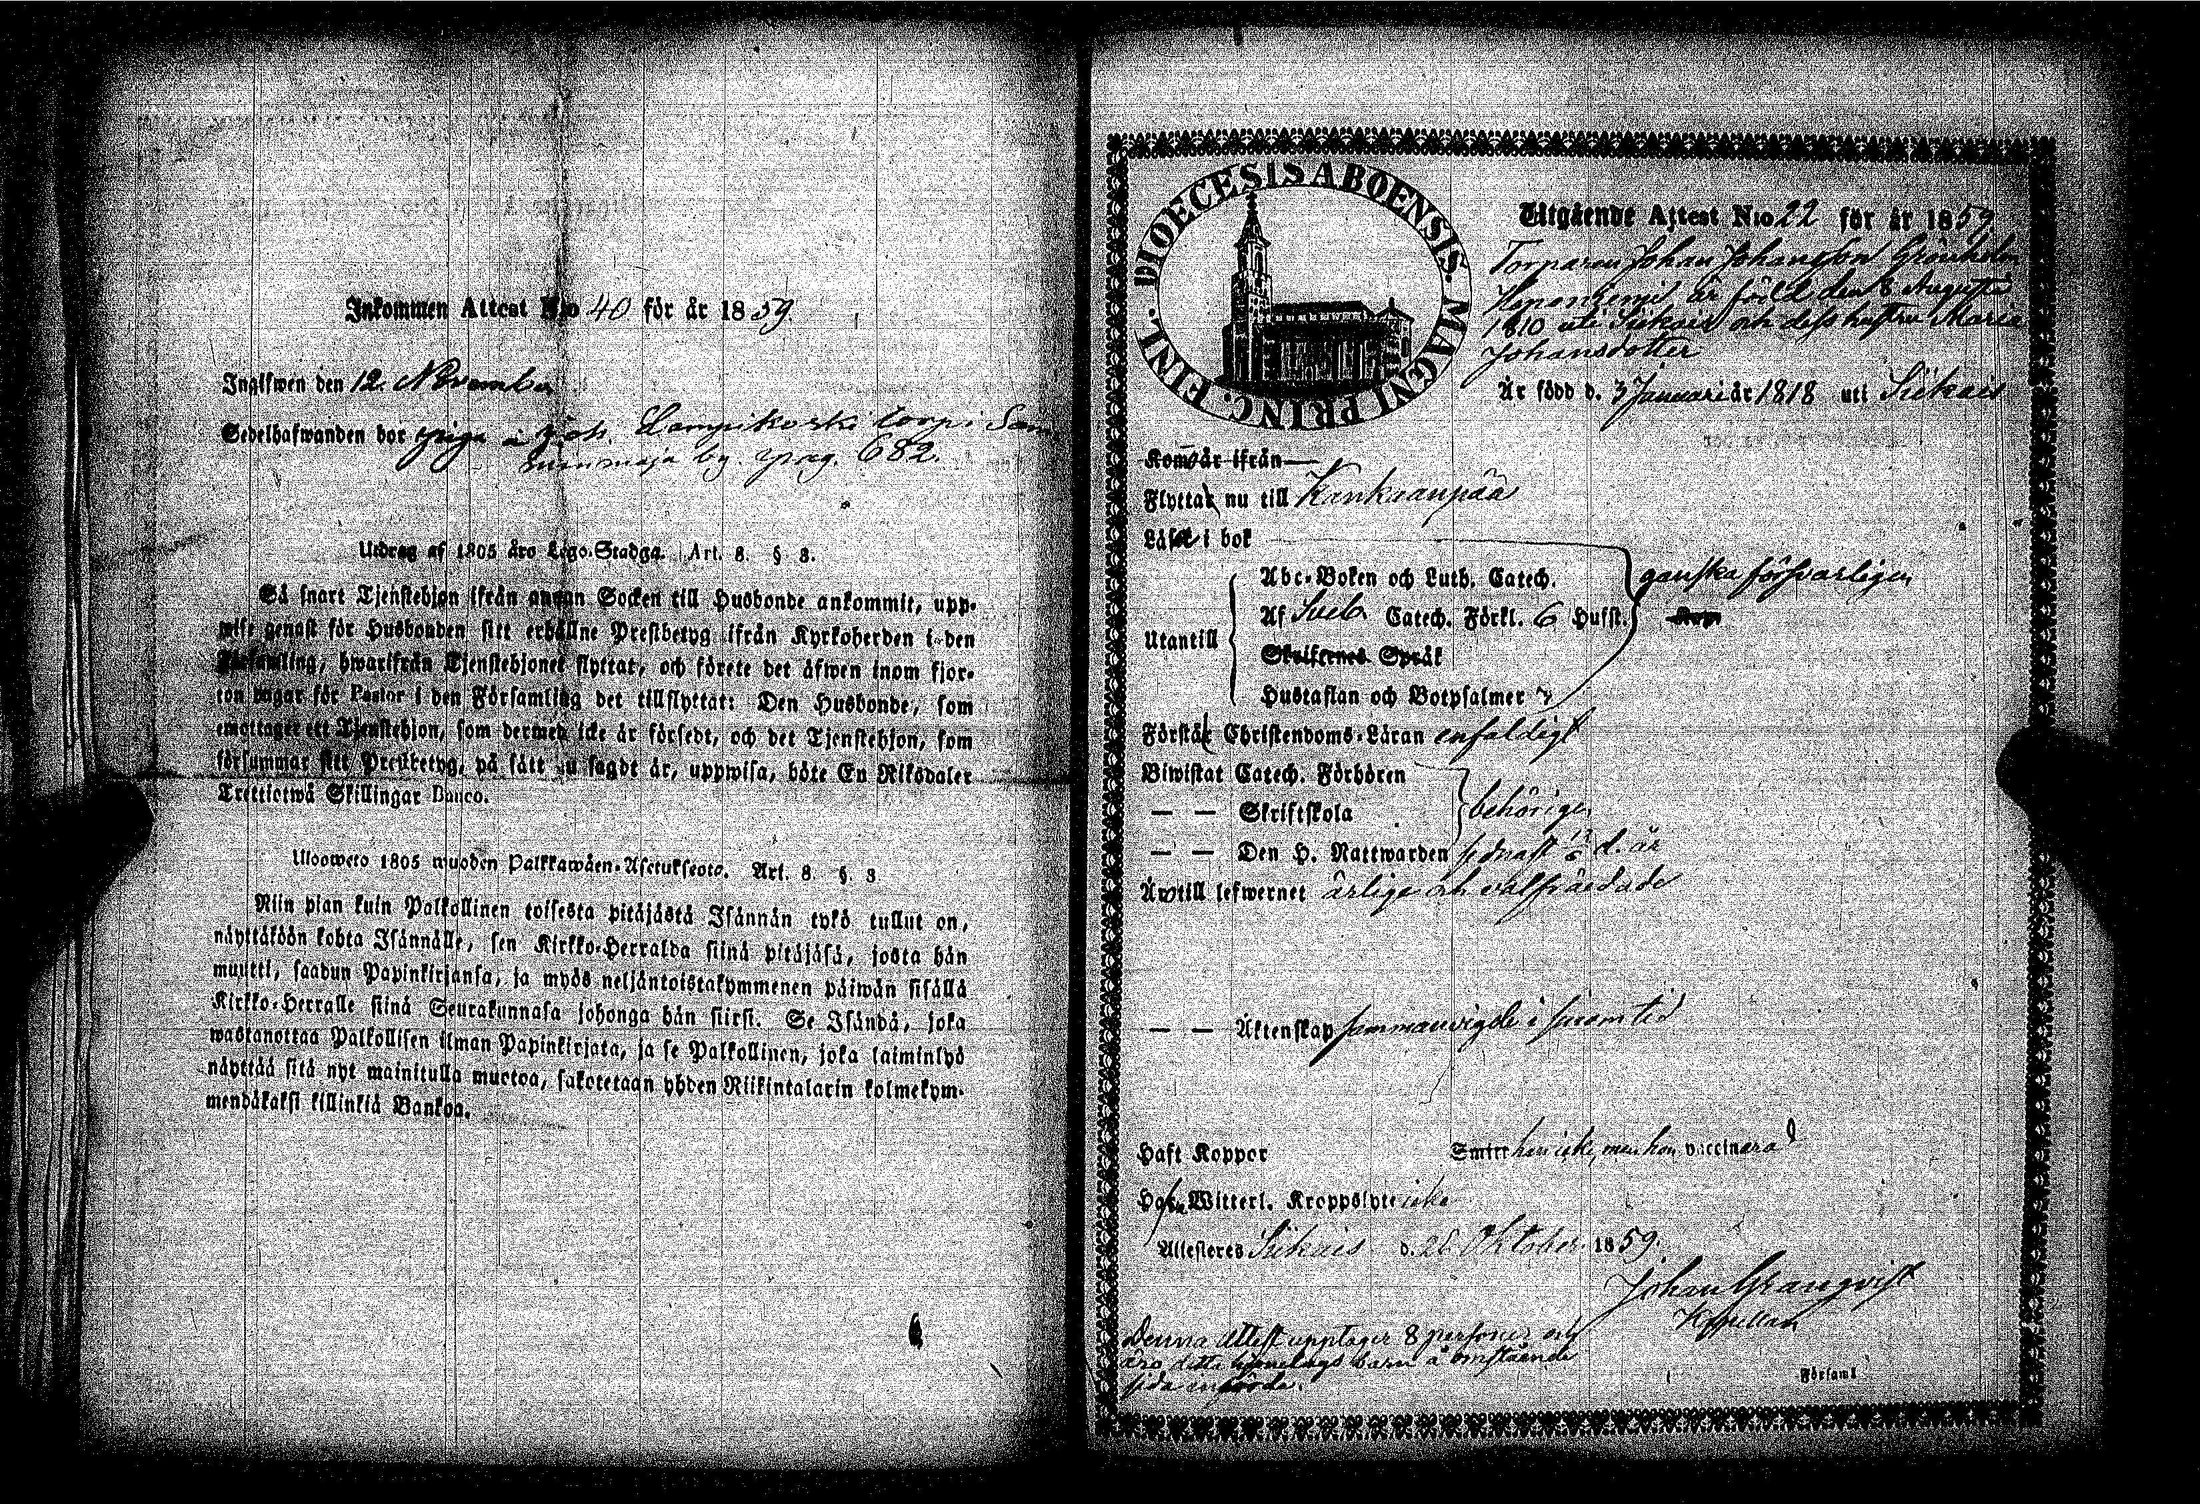 Inkommen Attest N:o 40 för år 1859.
Inglfwen den 12. November
Sedelhafwanden bor piga å Joh. Lampikoski torp i Sam
minmaja by. pag. 682.
Utdrag af 1805 års Lego-Stadga. Art. 8. § 3.
Så snart Tjenstehjon ifrån annan Socken till Husbonde ankommit, upp-
wise genast för Husbonden sitt erhållne Prestbetyg ifrån Kyrkoherden i den
Församling, hwarifrån Tjenstehjonet flyttat, och förete det äfwen inom fjor-
ton dagar för Pastor i den Församling det tillflyttat: Den Husbonde, som
emottager ett Tjenstehjon, som dermed icke är försedt, och det Tjenstehjon, som
försummar sitt Prestbetyg, på sätt nu sagdt är, uppwisa, böte En Riksdaler
Trettiotwå Skillingar Banco.
Uloosweto 1805 wuoden Palkkawäen-Asetuksesta. Art. 8. § 3
Niin pian kuin Palkollinen toisesta pitäjästä Isännän tykö tullut on,
näyttäköön kohta Isännälle, sen Kirkko-Herralda siinä pitäjäsä, josta hän
muutti, saadun Papinkirjansa, ja myös neljäntoistakymmenen päiwän sisällä
Kirkko-Herralle siinä Seurakunnasa johonga hän siirsi. Se Isändä, joka
wastanottaa Palkollisen ilman Papinkirjata, ja se Palkollinen, joka laiminlyö
näyttää sitä nyt mainitulla muotoa, sakotetaan yhden Riikintalarin kolmekym-
mendäkaksi killinkiä Bankoa.
DIOECESIS ABOENSIS. MAGNI PRINC. FINL.
Utgående Attest N:o 22 för år 1859
Torparen Johan Johansson Grönholm
är född den 8 Augusti
1810 uti Siikais och dess hustru Maria
Johansdotter
Är född d. 3 Januari år 1818 uti Siikais
Kom̄ är ifrån
Flyttar nu till Kankaanpää
Läser i bok
Abc-Boken och Luth. Catech. ganska försvarligen
Af Sveb. Catech. Förkl. 6 Hufst.
Utantill
Skriftenes Språk
Hustaflan och Botpsalmer 7
Förstår Christendoms-Läran enfaldigt
Biwistat Catech. Förhören
— — Skriftskola behörigen
— — Den H. Nattwarden sednast d. år
Är till lefwernet ärliga och välfräjdade
— — Äktenskap sammanvigde i sinom tid
Haft Koppor han icke, men hon vaccinerad
Hafva Witterl. Kroppslyte icke
Attesteres Siikais d. 26 Oktober 1859.
Johan Granqvist
Kapellan
Denna attest upptager 8 personer och
äro detta hjonelags barn å omstående
sida införda.
Församl